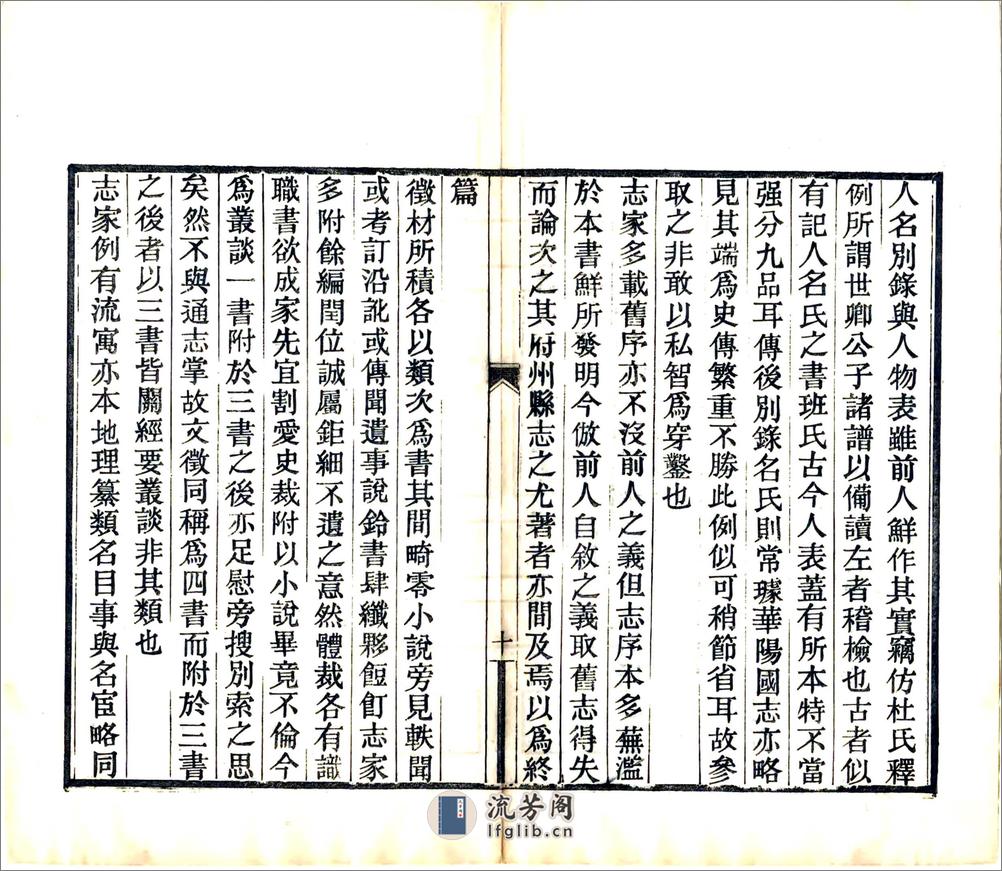 人名別錄與人物表雖前人鮮作其實竊仿杜氏釋
例所謂世卿公子諸譜以備讀左者稽檢也古者似
有記人名氏之書班氏古今人表蓋有所本特不當
强分九品耳傳後別錄名氏則常璩華陽國志亦略
見其端爲史傳繁重不勝此例似可稍節省耳故參
取之非敢以私智爲穿鑿也
志家多載舊序亦不沒前人之義但志序本多蕪濫
於本書鮮所發明今倣前人自敘之義取舊志得失
而論次之其府州縣志之尤著者亦間及焉以爲終
篇
徵材所積各以類次爲書其間畸零小說旁見軼聞
或考訂沿訛或傳聞遺事說鈴書肆纖夥餖飣志家
多附餘編閏位誠屬鉅細不遺之意然體裁各有識
職書欲成家先宜割愛史裁附以小說畢竟不倫今
爲叢談一書附於三書之後亦足慰旁搜別索之思
矣然不與通志掌故文徵同稱爲四書而附於三書
之後者以三書皆關經要叢談非其類也
志家例有流寓亦本地理纂類名目事與名宦略同
十
流芳阁
lfglib.cn